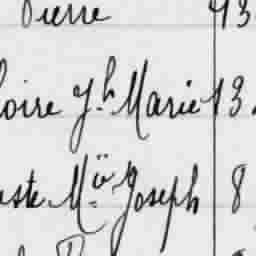 Pierre 43
oire Jh Marie 13
este Mie Joseph 8